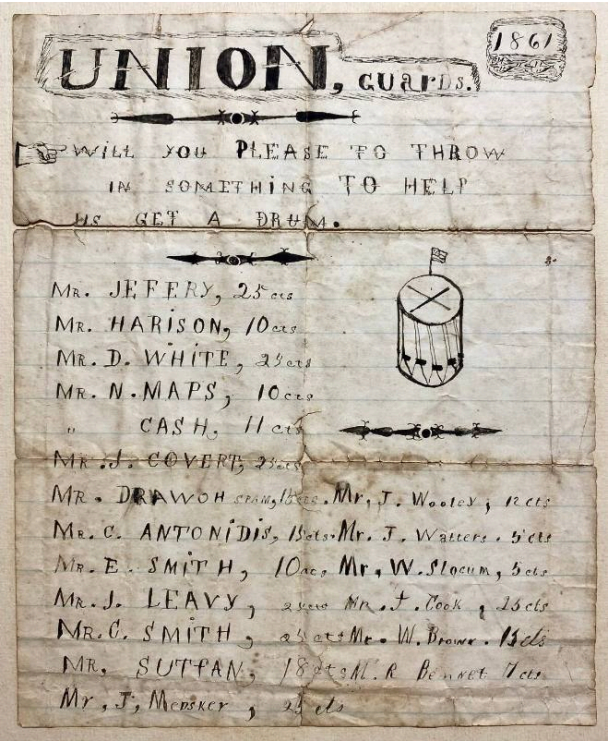 UNION, GUARDS.
1861
WILL YOU PLEASE TO THROW
IN SOMETHING TO HELP
US GET A DRUM.
MR. JEFERY, 25 cts
MR. HARISON, 10 cts
MR. D. WHITE, 25 cts
MR. N. MAPS, 10 cts
" CASH, 11 cts
MR. J. COVERT, 25 cts
MR. DRAWOH 15 cts. Mr, J. Wooley, 12 cts
MR. C. ANTONIDIS, 15 cts. Mr. J. Walters. 5 cts
MR. E. SMITH, 10 cts, Mr, W. Slocum, 5 cts
MR. J. LEAVY, cts Mr. J. Cook, 25 cts
MR. C. SMITH, 25 cts Mr. W. Brown. 15 cts
MR, SUTPAN, 18 cts M. R Bennet 7 cts
Mr, J, Mensker, 25 cts